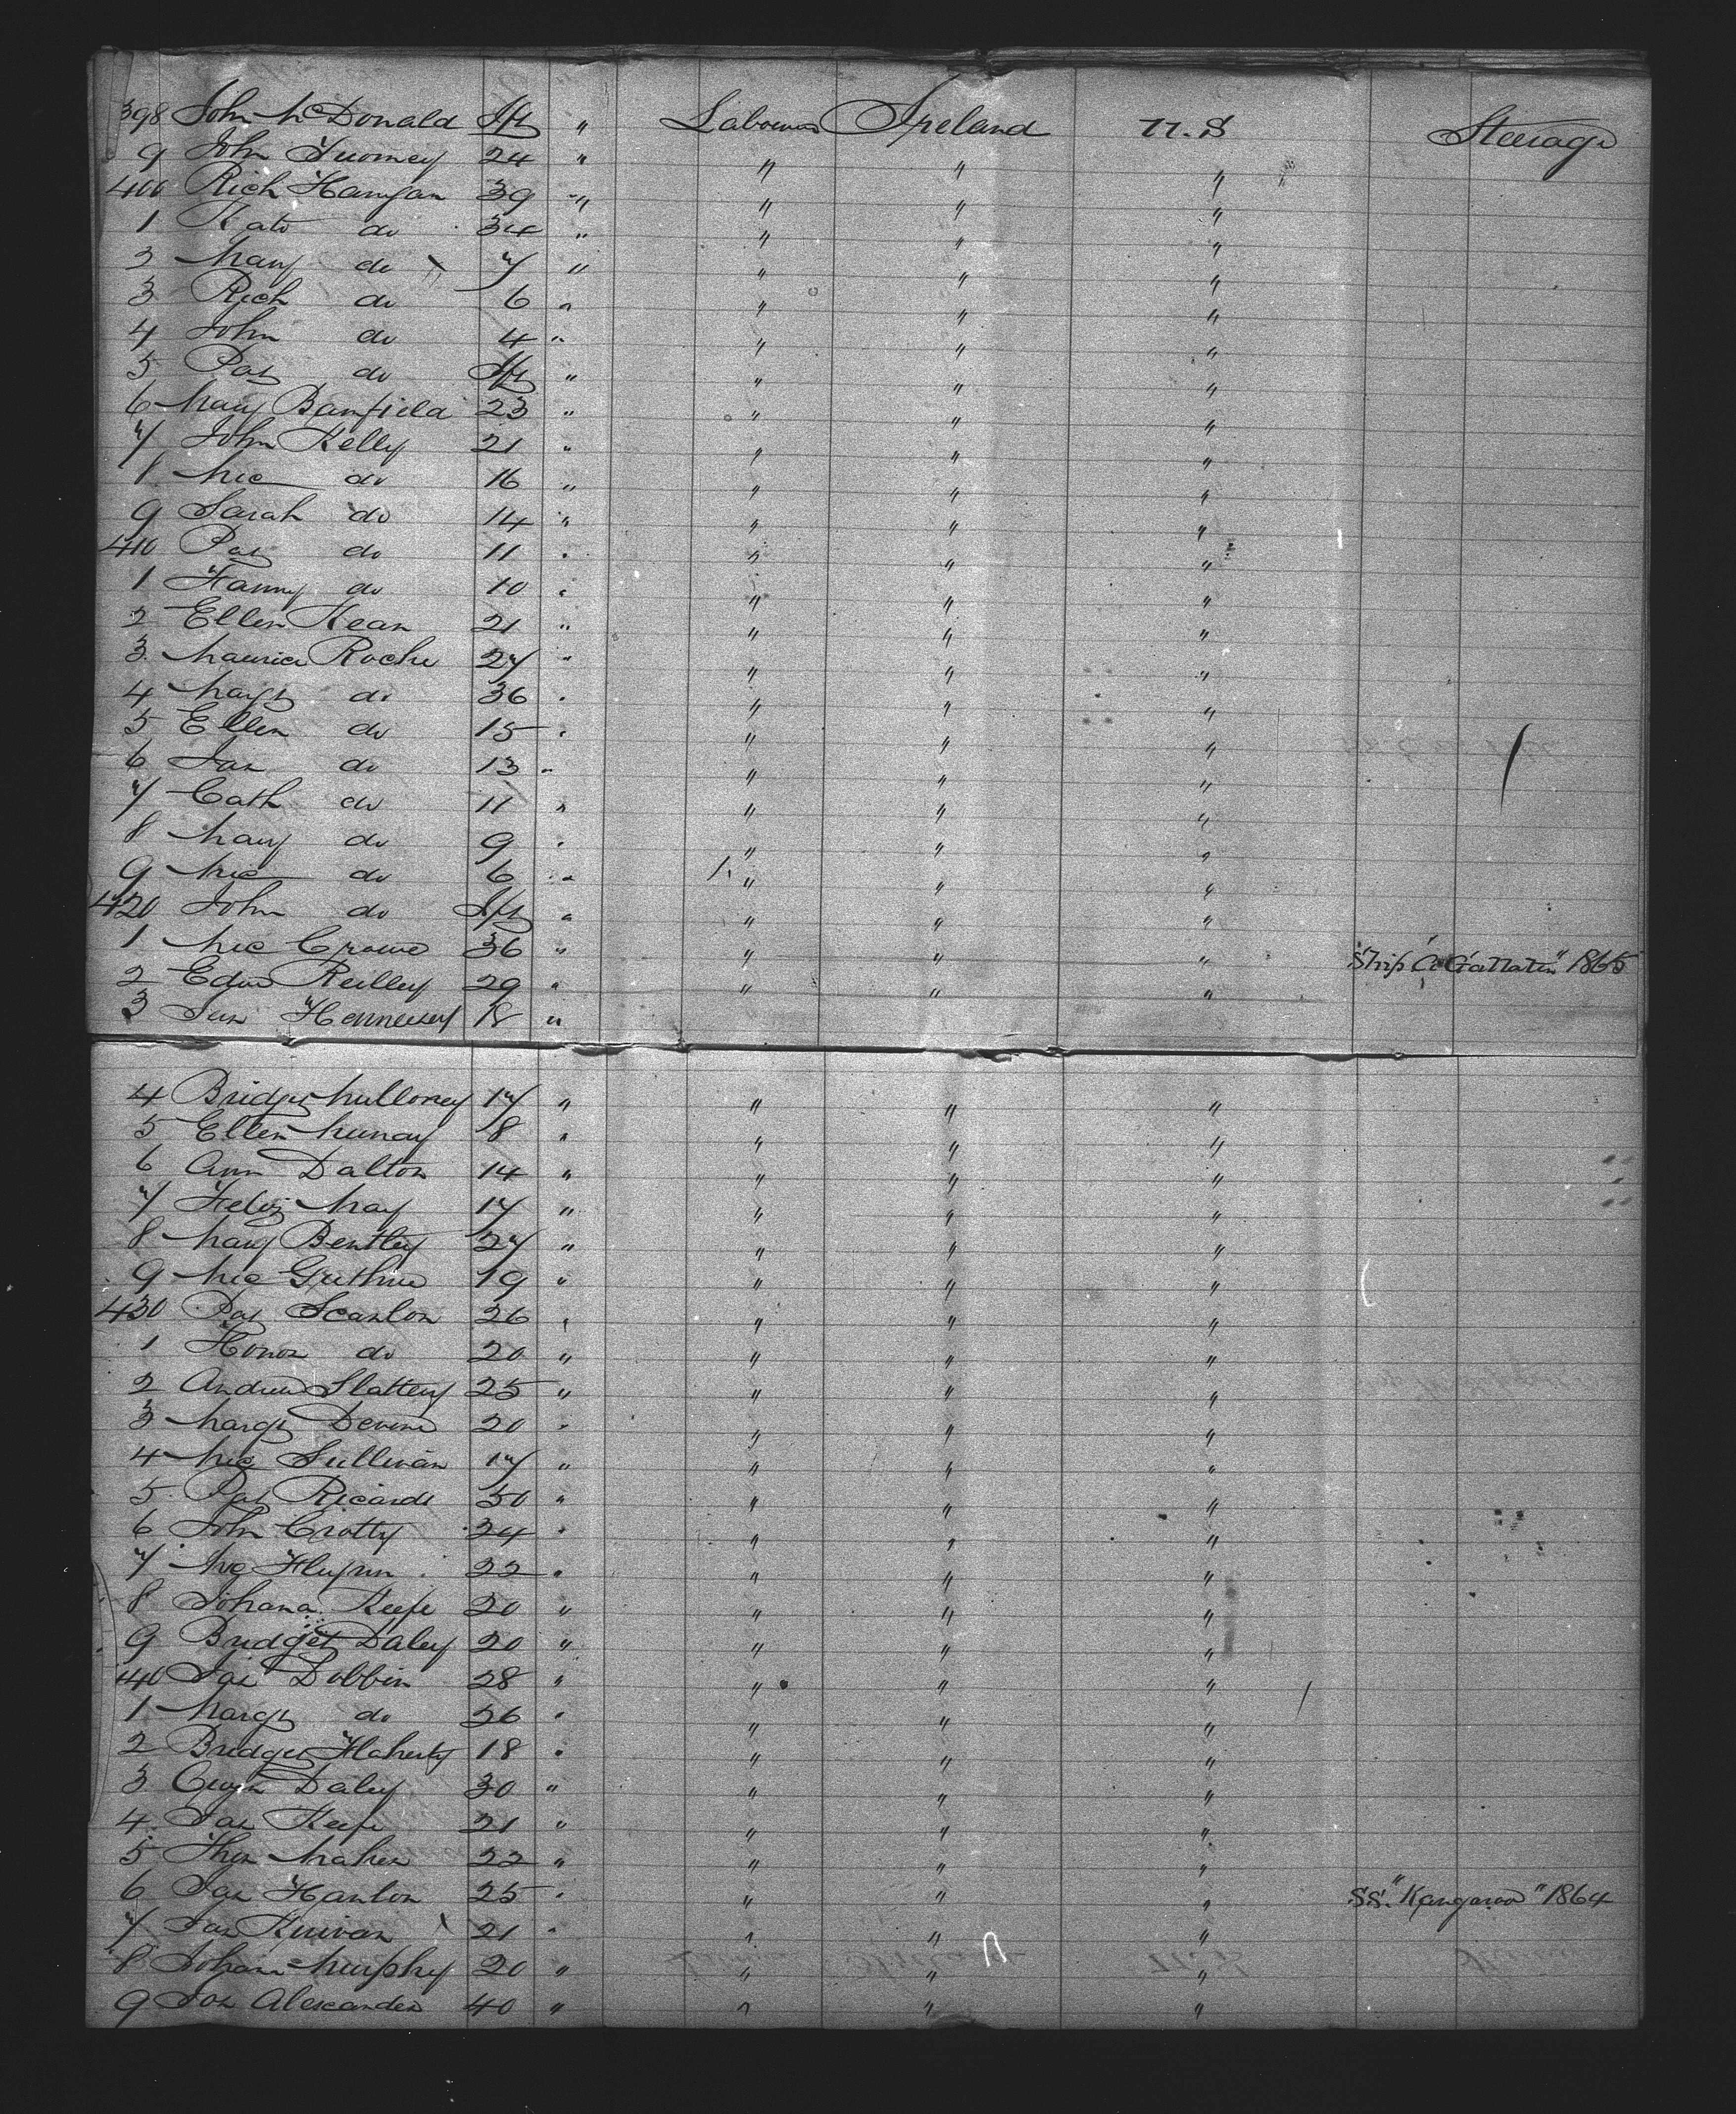 398 John McDonald Inf " Labourers Ireland U.S Steerage
9 John Twomey 24 " " " "
400 Rich Hanigan 39 " " " "
1 Kate do 34 " " " "
2 Mary do 7 " " " "
3 Rich do 6 " " " "
4 John do 4 " " " "
5 Pat do Inf " " " "
6 Mary Banfield 23 " " " "
7 John Kelly 21 " " " "
8 Mic do 16 " " " "
9 Sarah do 14 " " " "
410 Pat do 11 " " " "
1 Fanny do 10 " " " "
2 Ellen Kean 21 " " " "
3 Maurice Roche 27 " " " "
4 Margt do 36 " " " "
5 Ellen do 15 " " " "
6 Jas do 13 " " " "
7 Cath do 11 " " " "
8 Mary do 9 " " " "
9 Mic do 6 " " " "
420 John do Inf " " " "
1 Mic Crowe 36 " " " " Ship "A Gallatin" 1865
2 Edwd Reilley 29 " " " "
3 Jas Hennessy 18 "
4 Bridgt Mulloney 17 " " " "
5 Ellen Murray 8 " " " "
6 Ann Dalton 14 " " " "
7 Feliz May 17 " " " "
8 Mary Bentley 27 " " " "
9 Mic Guthrie 19 " " " "
430 Pat Scanlon 26 " " " "
1 Honor do 20 " " " "
2 Andrew Slattery 25 " " " "
3 Margt Devine 20 " " " "
4 Mic Sullivan 17 " " " "
5 Pat Ricards 50 " " " "
6 John Crotty 24 " " " "
7 Flynn 22 " " " "
8 Johana Keefe 20 " " " "
9 Bridget Daley 20 " " " "
440 Jas Dobbin 28 " " " "
1 Margt do 26 " " " "
2 Bridget Flaherty 18 " " " "
3 Owen Daley 30 " " " "
4 Jas Keefe 21 " " " "
5 Thos Maher 22 " " " "
6 Jas Hanlon 25 " " " " SS. "Kangaroo" 1864
7 Jas Kirivan 21 " " " "
8 Johan Murphy 20 " " " "
9 Jos Alexander 40 " " " "